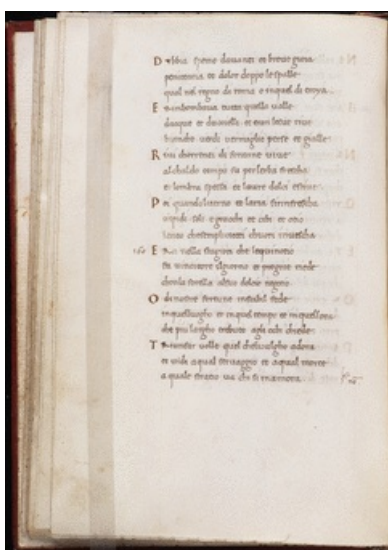 D ubbia speme dauanti et breue gioia
penitentia et dolor doppo le spalle
qual nel regno di roma o inquel di troya
E rimbombaua tutta quella valle
dacque et daucelli et eran lesue riue
bianche uerdi uermiglie perse et gialle
R iui chorrenti di fontane uiue
alchaldo tempo su perlerba frescha
et lombra spessa et laure dolci estiue
P oi quandoluerno et laria sirinfrescha
tepidi soli et giuochi et cibi et otio
lento chesemplicetti chuori inuescha
E ra nella stagion che lequinotio
fa uincitore ilgiorno et progne riede
chonla sorella alsuo dolcie negotio
O di nostre fortune instabil fede
inquelluogho et inquel tempo et inquellora
che piu largho tributo agli ochi chiede
T riumfar uolle quel chelvulgho adora
et uidi aqual seruaggio et aqual morte
a quale stratio ua chi sinnamora